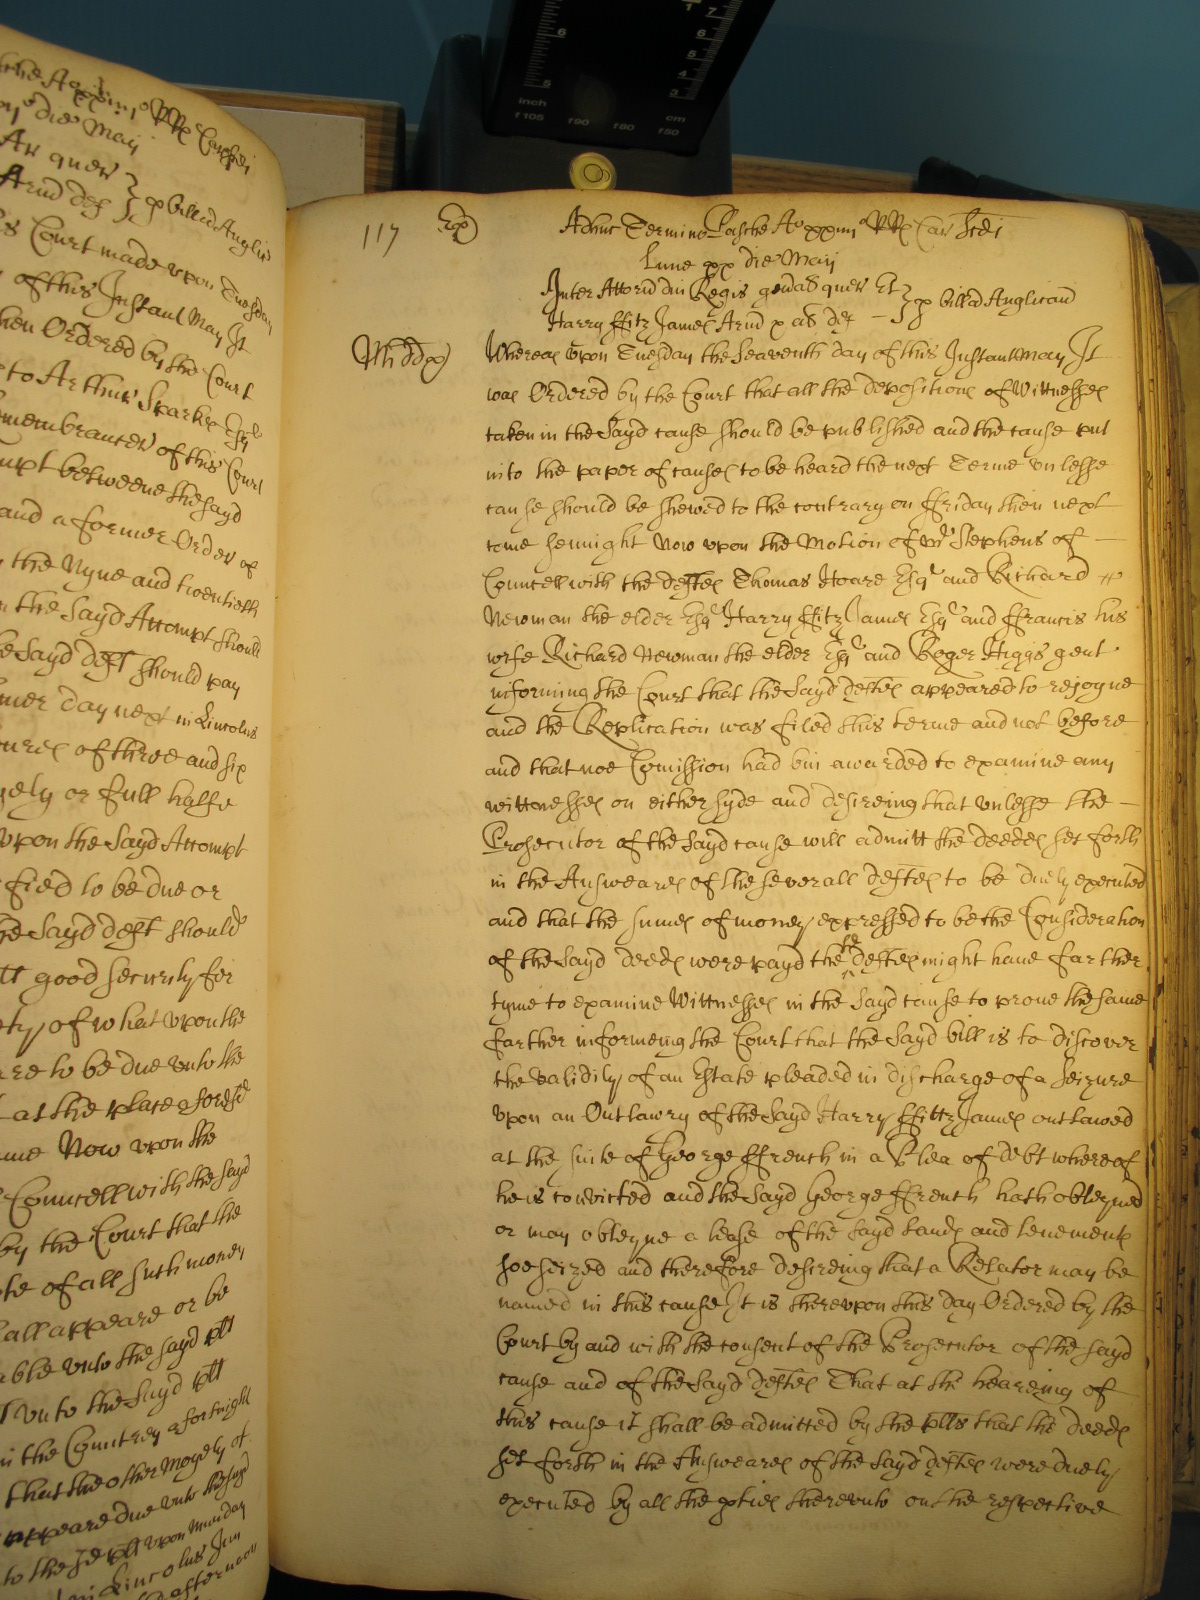 the Court made upon Tuesday
of this Instant May It
then Ordered by the Court
to Arthur Sparke Esqr
membrancer of this Court
mpt betweene the sayd
and a former Order of
the Nyne and twentieth
the Sayd Attempt should
he Sayd deft should pay
mer day next in Lincolns
oures of three and six
yely or full halfe
upon the Sayd Attempt
fied to be due or
he Sayd deft should
tt good security for
ty of what upon the
are to be due unto the
at the place aforesd
ame Now upon the
Councell with the sayd
by the Court that the
te of all such money
all appeare or be
able unto the sayd plt
unto the Sayd plt
in the Countrey a fortnight
that the other Moyety of
appeare due unto the sayd
to the sd plt upon Munday
in Lincolns Inn
afternoon
117
Adhuc Termino Pasche Ao xxiiijo RRs Car Scdi
Lune xx die Maij
Inter Attorn dni Regis gen&alis quer Et
Harry ffitz James Arm & als def } p billa Anglican
Midd
Whereas upon Tuesday the Seaventh day of this Instant May It
was Ordered by the Court that all the depositions of Wittnesses
taken in the Sayd cause should be published and the cause put
into the paper of causes to be heard the next Terme unlesse
cause should be shewed to the contrary on ffriday then next
come sennight Now upon the Motion of Mr Stephens of —
Councell with the deftes Thomas Hoare Esqr and Richard
Newman the elder Esqr Harry ffitz James Esqr and ffrancis his
wife Richard Newman the elder Esqr and Roger Higgs gent
informing the Court that the Sayd deftes appeared to rejoyne
and the Replication was filed this terme and not before
and that noe Comission had bin awarded to examine any
wittnesses on either syde and desireing that unlesse the —
Prosecutor of the Sayd cause will admitt the deedes set forth
in the Answeares of the severall deftes to be duely executed
and that the sumes of money expressed to be the Consideration
of the Sayd deedes were payd the sd deftes might have farther
tyme to examine Wittnesses in the Sayd cause to prove the same
farther informeing the Court that the Sayd bill is to discover
the validity of an Estate pleaded in discharge of a seizure
upon an Outlawry of the Sayd Harry ffittz James outlawed
at the suite of George ffrench in a Plea of debt whereof
he is convicted and the Sayd George ffrench hath obteyned
or may obteyne a lease of the sayd lands and tenements
soe seized and therefore desireing that a Relator may be
named in this cause It is thereupon this day Ordered by the
Court by and with the consent of the Prosecutor of the sayd
cause and of the Sayd deftes That at the heareing of
this cause it shall be admitted by the plts that the deedes
set forth in the Answeares of the Sayd deftes were duely
executed by all the pties thereunto on the respective